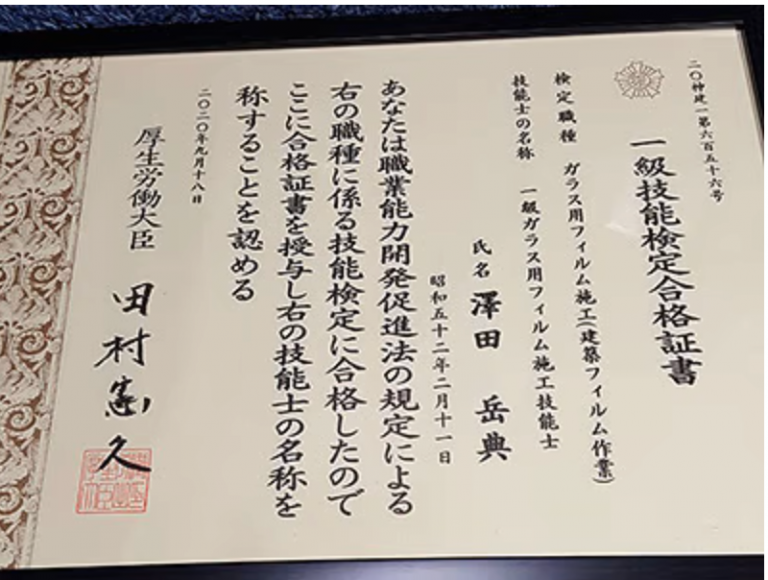 二〇神建一第六百五十六号
一級技能検定合格証書
検定職種 ガラス用フィルム施工(建築フィルム作業)
技能士の名称 一級ガラス用フィルム施工技能士
氏名 澤田 岳典
昭和五十二年二月十一日
あなたは職業能力開発促進法の規定による
右の職種に係る技能検定に合格したので
ここに合格証書を授与し右の技能士の名称を
称することを認める
二〇二〇年九月十八日
厚生労働大臣 田村憲久